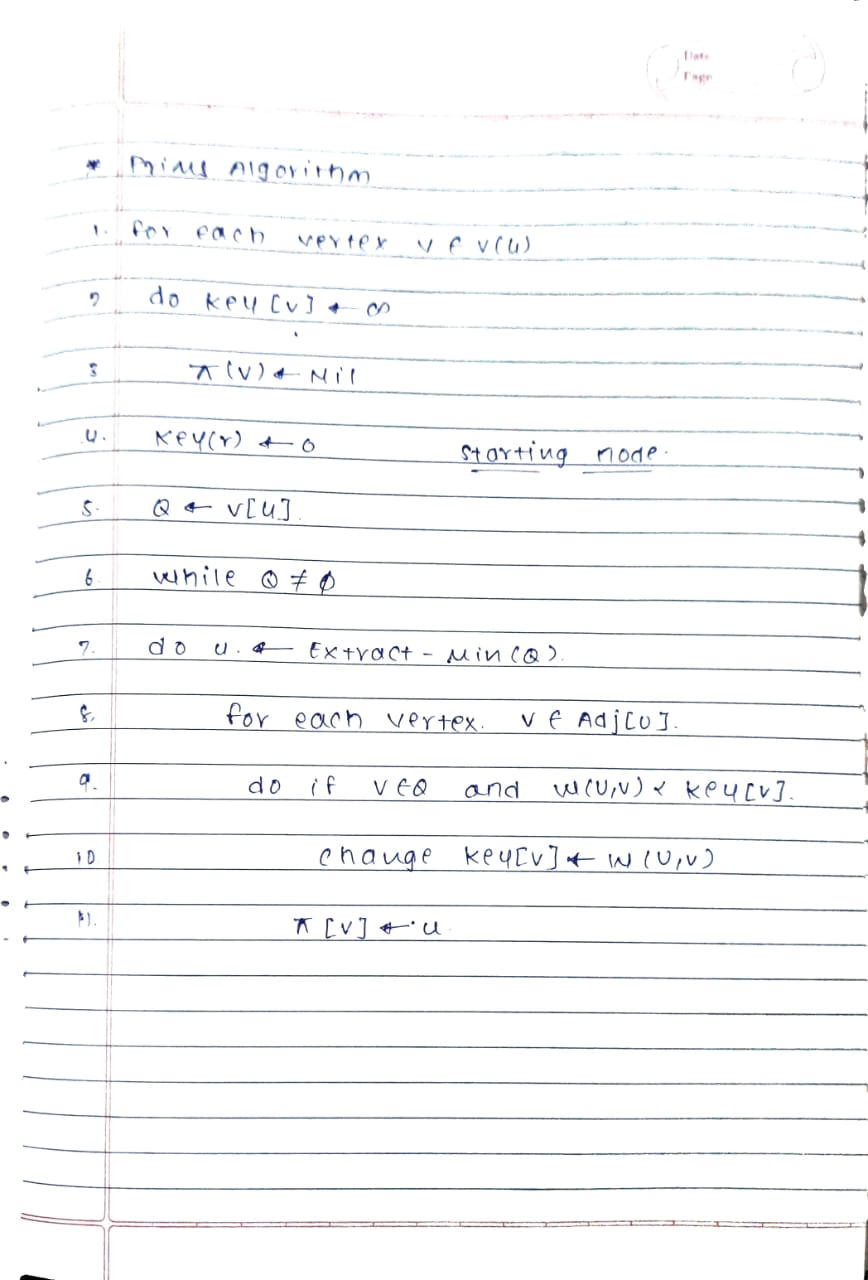 Date
Page
* Prims Algorithm
1. for each vertex v ∈ v(G)
2 do key [v] ← ∞
3 π(v) ← Nil
4. Key(r) ← 0 starting node.
5. Q ← v[G].
6. while Q ≠ φ
7. do u. ← Extract - Min(Q).
8. for each vertex. v ∈ Adj[u].
9. do if v∈Q and w(u,v) < key[v].
10 change key[v] ← w(u,v)
11. π [v] ← u.